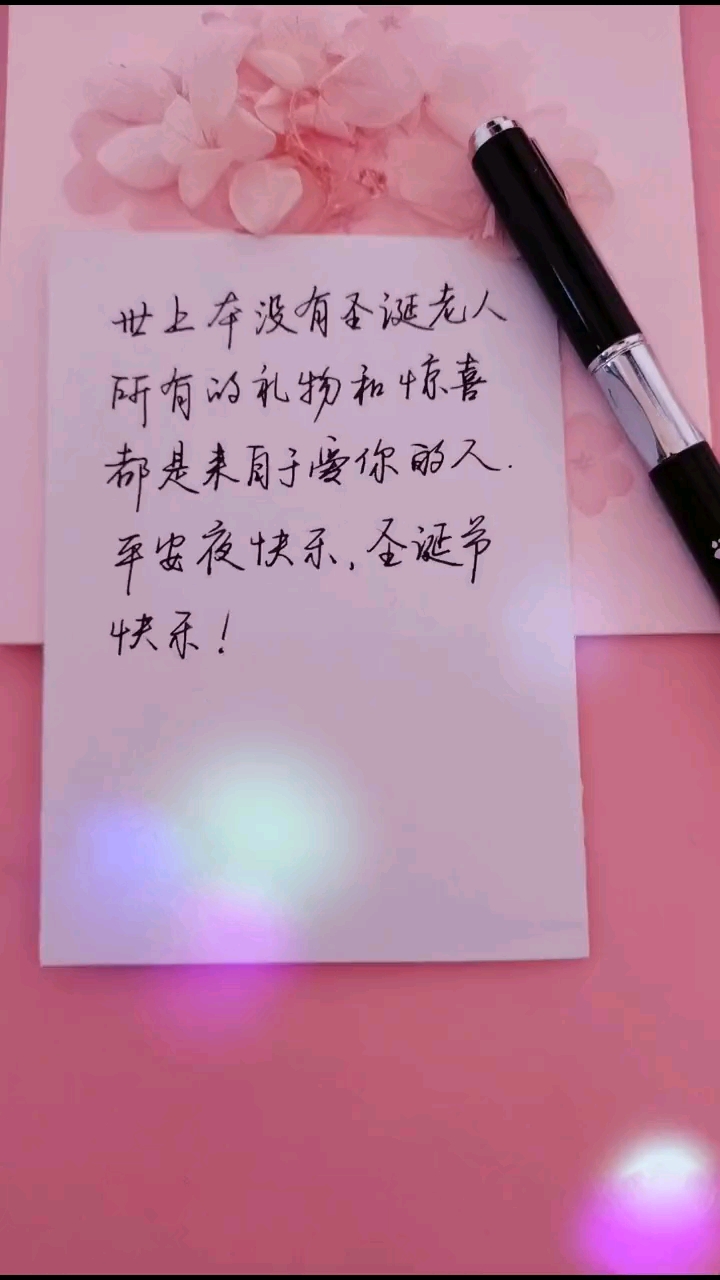 世上本没有圣诞老人
所有的礼物和惊喜
都是来自于爱你的人.
平安夜快乐,圣诞节
快乐!